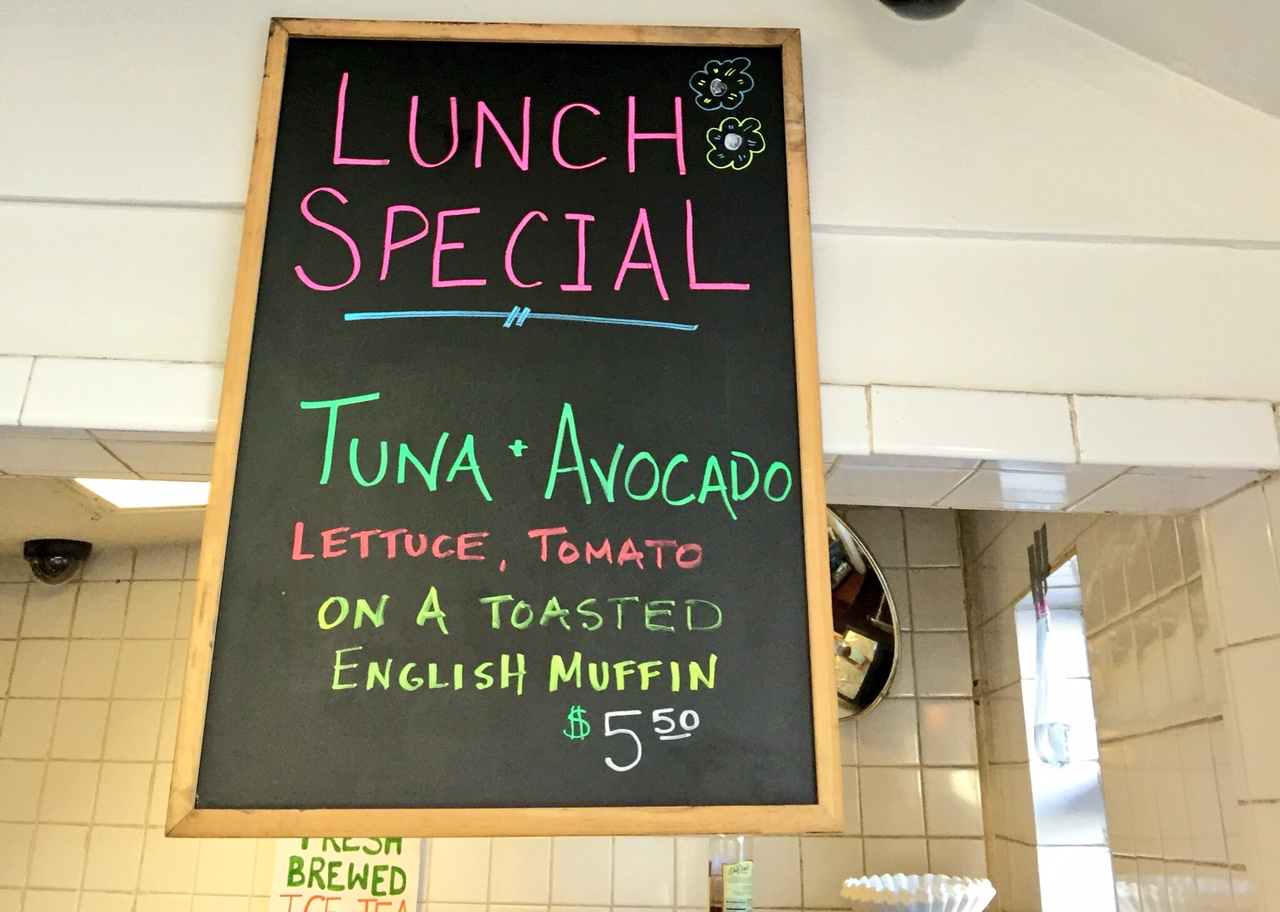 LUNCH
SPECIAL
TUNA + AVOCADO
LETTUCE, TOMATO
ON A TOASTED
ENGLISH MUFFIN
$5 50
FRESH
BREWED
ICE TEA